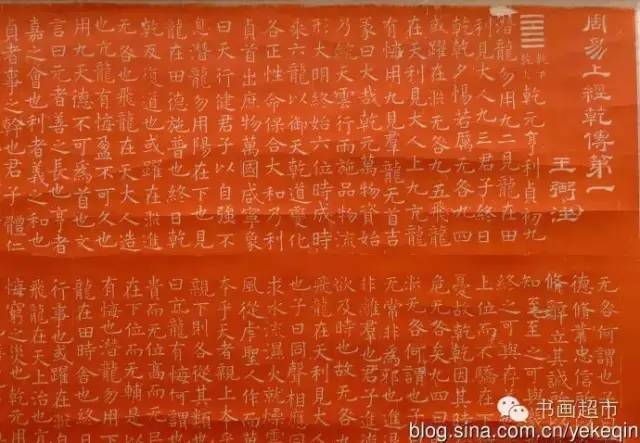 周易上經乾傳第一
王弼注
䷀乾下乾上乾元亨利貞初九
潛龍勿用九二見龍在田
利見大人九三君子終日
乾乾夕惕若厲无咎九四
或躍在淵无咎九五飛龍
在天利見大人上九亢龍
有悔用九見羣龍无首吉
彖曰大哉乾元萬物資始
乃統天雲行雨施品物流
形大明終始六位時成時
乘六龍以御天乾道變化
各正性命保合大和乃利
貞首出庶物萬國咸寧象
曰天行健君子以自強不
息潛龍勿用陽在下也見
龍在田德施普也終日乾
乾反復道也或躍在淵進
无咎也飛龍在天大人造
也亢龍有悔盈不可久也
用九天德不可為首也文
言曰元者善之長也亨者
嘉之會也利者義之和也
貞者事之幹也君子體仁
无咎何謂也
德修業忠信
修辭立其誠
知至至之可與
終之可與存
上位而不驕在下
憂故乾乾因其時
危无咎矣九四
淵无咎何謂也子
无常非為邪也進退
非離群也君子進
欲及時也故无咎
飛龍在天利見大
也子曰同聲相應
求水流濕火就燥雲
風從虎聖人作而
本乎天者親上本
親下則各從其類也
曰亢龍有悔何謂也
貴而无位高而无民
在下位而无輔是以
有悔也潛龍勿用下
龍在田時舍也終日
行事也或躍在淵自
飛龍在天上治也亢
悔窮之災也乾元用
书画超市
blog.sina.com.cn/yekeqin